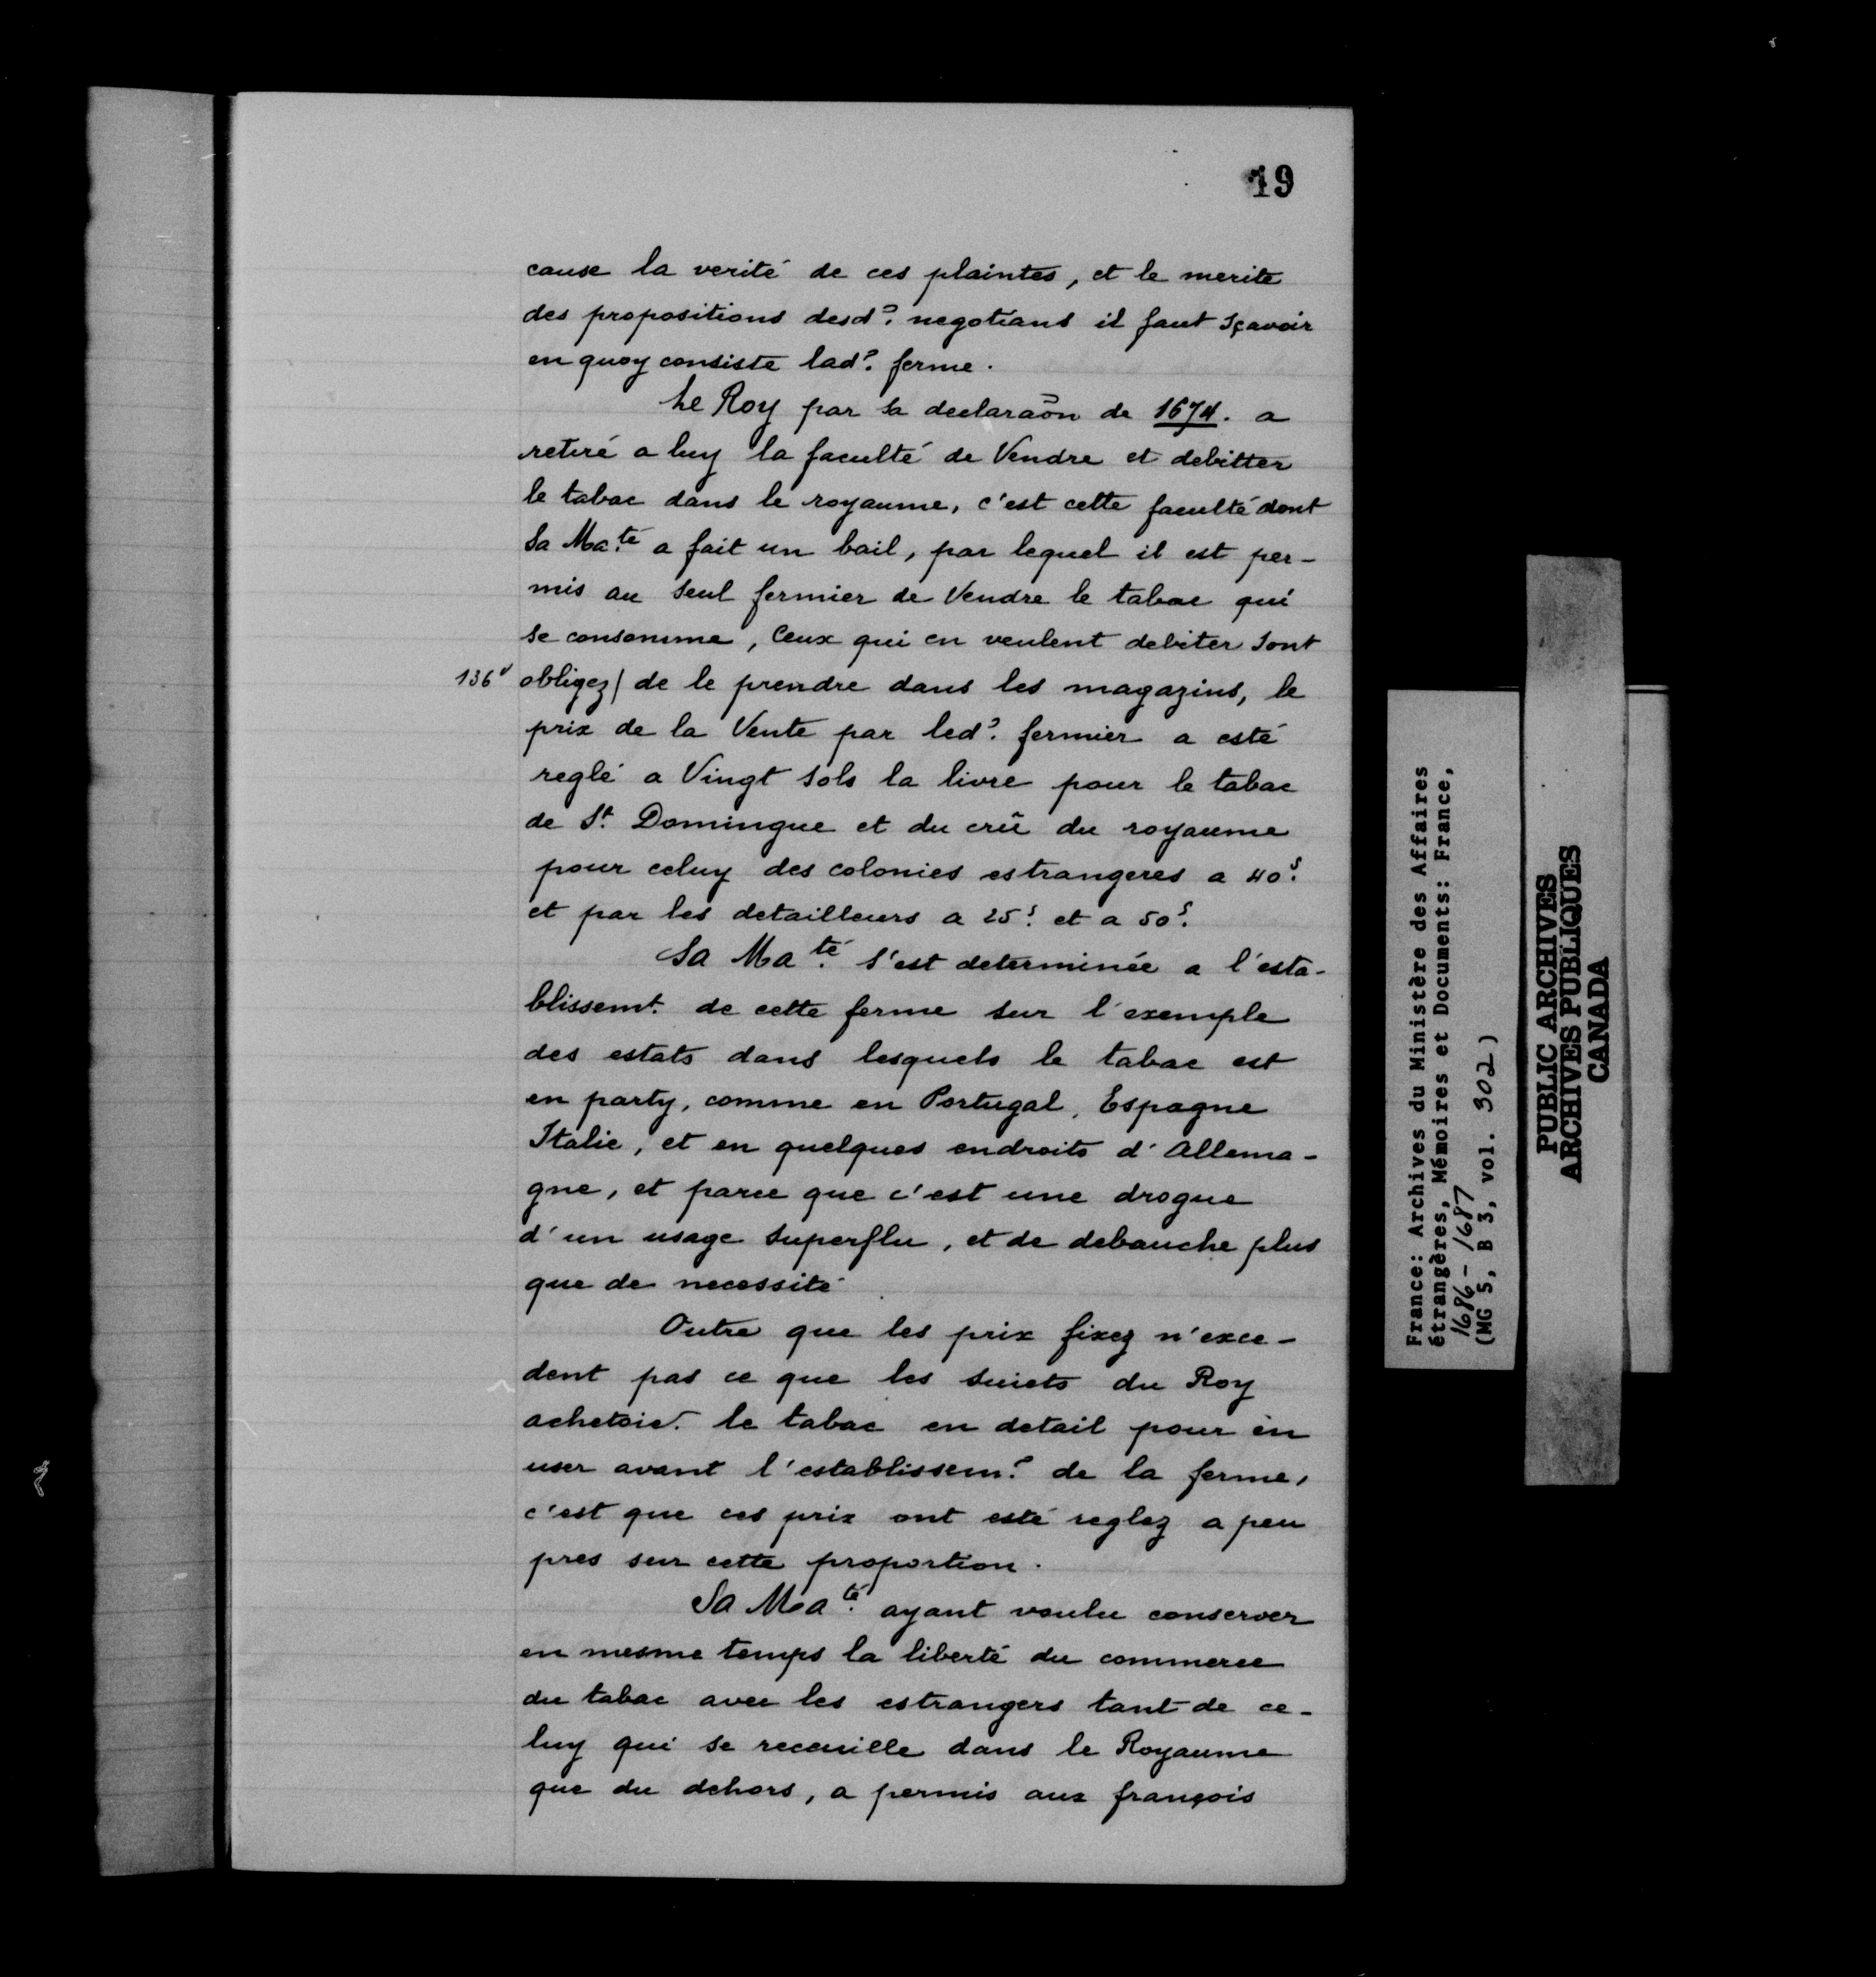 19
cause la verité de ces plaintes, et le merite
des propositions desd? negotians il faut sçavoir
en quoy consiste lad? ferme.
Le Roy par sa declaraõn de 1674. a
retiré a luy la faculté de Vendre et debitter
le tabac dans le royaume, c'est cette faculté dont
Sa Ma.té a fait un bail, par lequel il est per-
mis au seul fermier de Vendre le tabac qui
se consomme, Ceux qui en veulent debiter sont
136v obligez/ de le prendre dans les magazins, le
prix de la Vente par led? fermier a esté
reglé a Vingt sols la livre pour le tabac
de St. Domingue et du crû du royaume
pour celuy des colonies estrangeres a 40s.
et par les detailleurs a 25s. et a 50s.
Sa Ma.té s'est determinée a l'esta-
blissemt. de cette ferme sur l'exemple
des estats dans lesquels le tabac est
en party, comme en Portugal, Espagne
Italie, et en quelques endroits d'Allema-
gne, et parce que c'est une drogue
d'un usage superflu, et de debauche plus
que de necessité
Outre que les prix fixez n'exce-
dent pas ce que les suiets du Roy
achetoie. le tabac en detail pour en
user avant l'establissem? de la ferme,
c'est que ces prix ont esté reglez a peu
pres sur cette proportion.
Sa Ma.té ayant voulu conserver
en mesme temps la liberté du commerce
du tabac avec les estrangers tant de ce-
luy qui se recueille dans le Royaume
que du dehors, a permis aux françois
France: Archives du Ministère des Affaires
étrangères, Mémoires et Documents: France,
1686-1687
(MG 5, B 3, vol. 302)
PUBLIC ARCHIVES
ARCHIVES PUBLIQUES
CANADA